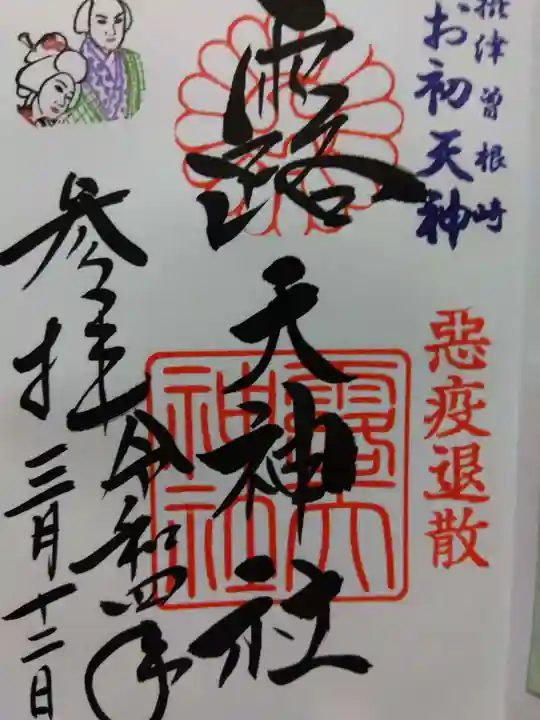 摂津曽根崎
お初天神
悪疫退散
露天神社
露天神社
参拝
令和四年
三月十二日